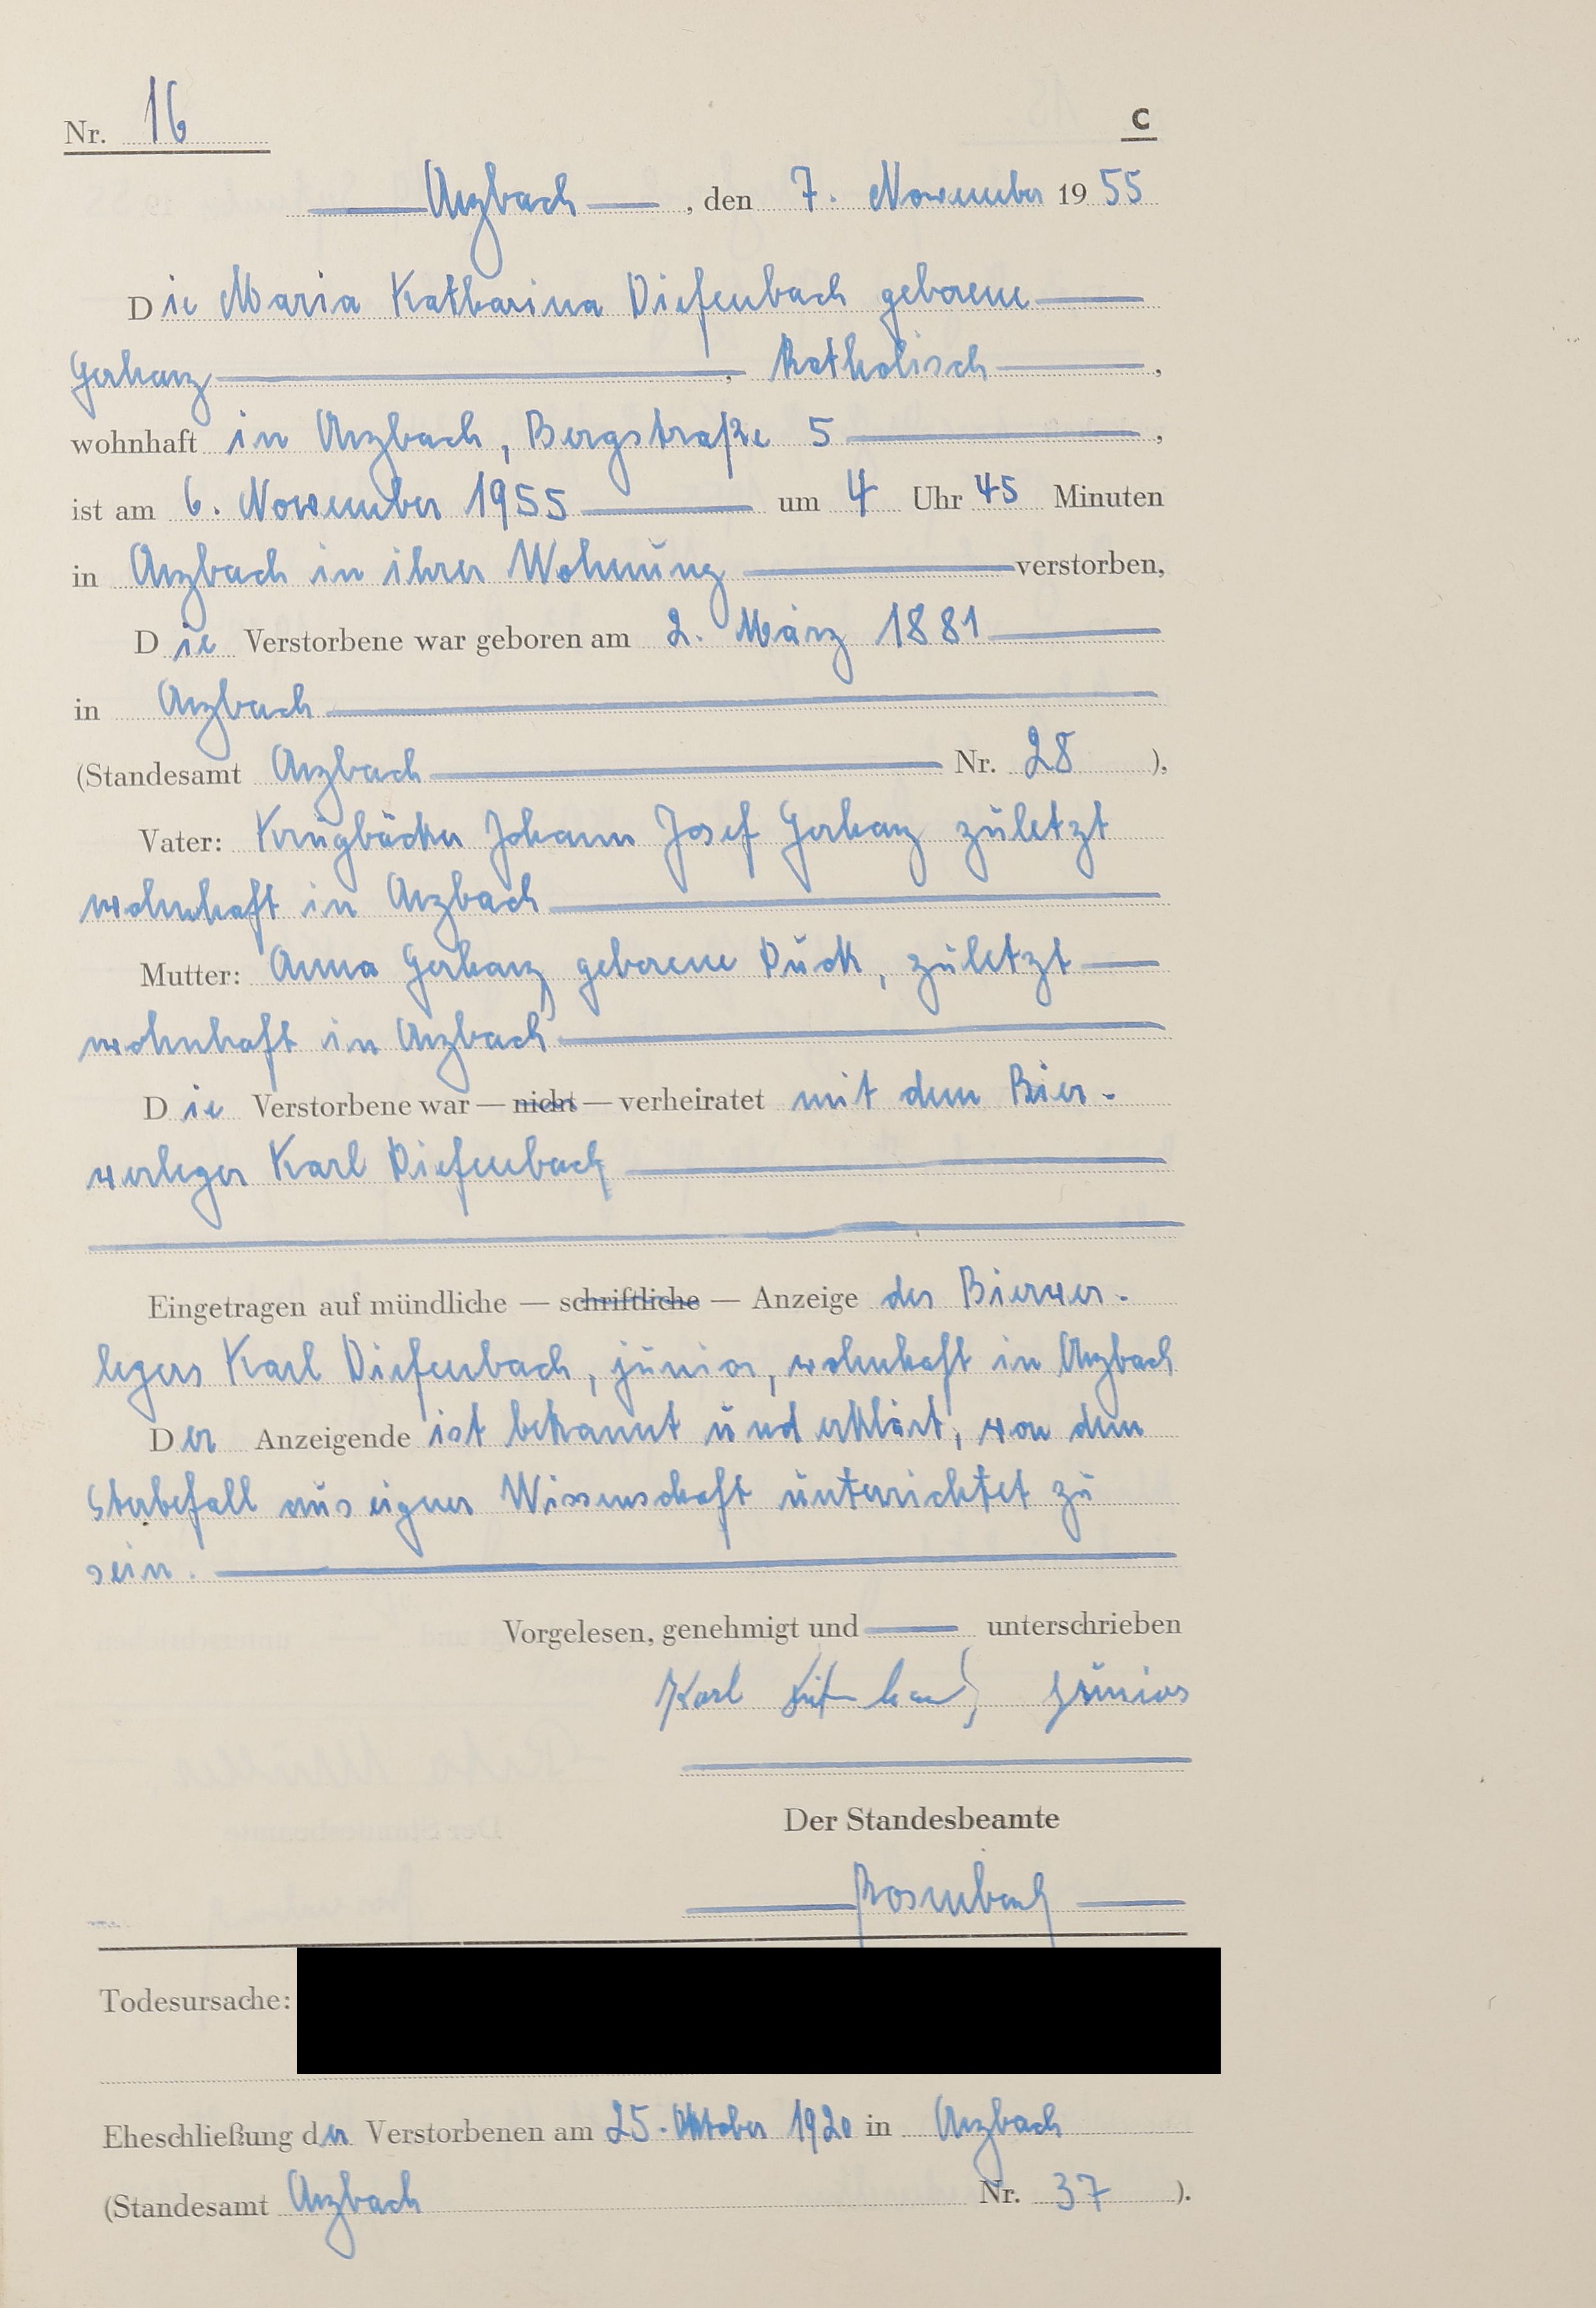 Nr. 16
C
Arzbach, den 7. November 1955
Die Maria Katharina Diefenbach geborene
Gerharz, Katholisch,
wohnhaft in Arzbach, Bergstraße 5,
ist am 6. November 1955 um 4 Uhr 45 Minuten
in Arzbach in ihrer Wohnung verstorben,
Die Verstorbene war geboren am 2. März 1881
in Arzbach
(Standesamt Arzbach Nr. 28),
Vater: Krugbäcker Johann Josef Gerharz zuletzt
wohnhaft in Arzbach
Mutter: Anna Gerharz geborene Dück, zuletzt
wohnhaft in Arzbach
Die Verstorbene war — nicht — verheiratet mit dem Bier-
verleger Karl Diefenbach
Eingetragen auf mündliche — schriftliche — Anzeige des Bierver-
legers Karl Diefenbach, junior, wohnhaft in Arzbach
Der Anzeigende ist bekannt und erklärt, von dem
Sterbefall aus eigner Wissenschaft unterrichtet zu
sein.
Vorgelesen, genehmigt und unterschrieben
Karl Diefenbach junior
Der Standesbeamte
Rosenbach
Todesursache:
Eheschließung der Verstorbenen am 25. Oktober 1920 in Arzbach
(Standesamt Arzbach Nr. 37).